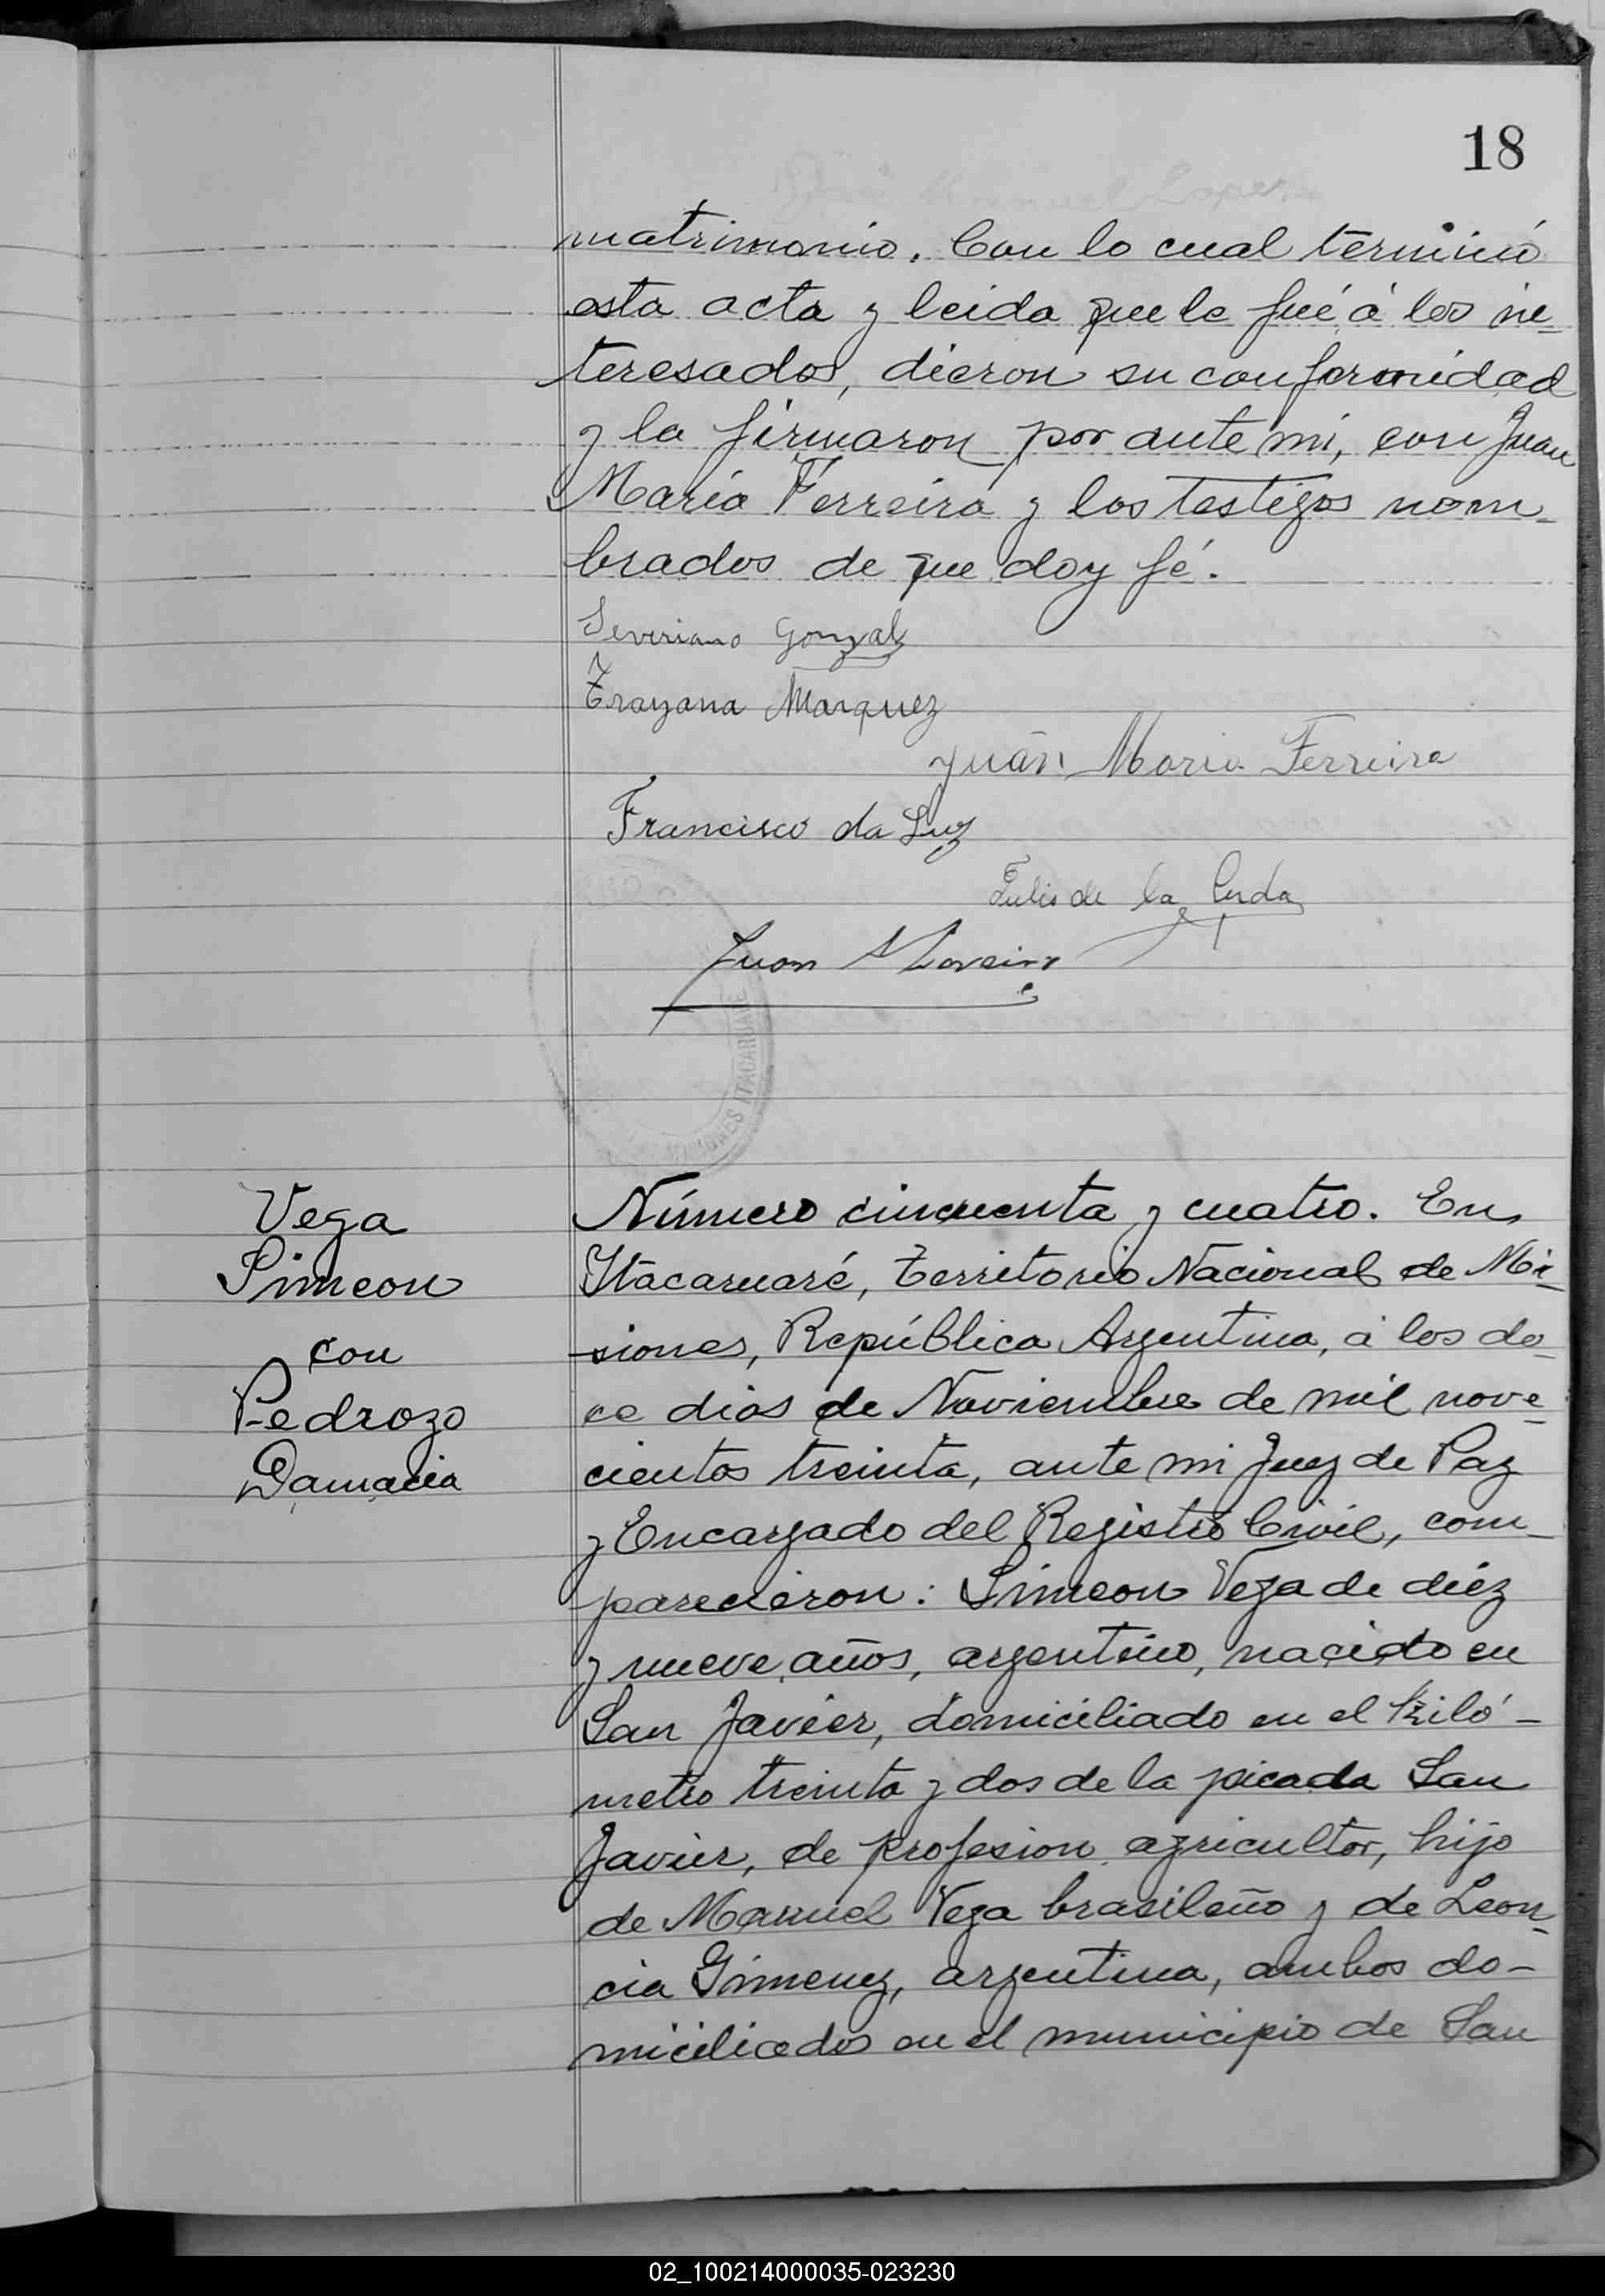 18
matrimonio. Con lo cual terminó
esta acta y leida que le fué á los in-
teresados, dieron su conformidad
y la firmaron por ante mi, con Juan
María Ferreira y los testigos nom-
brados de que doy fé.
Severiano Gonzal
Trayana Marquez
Juan Maria Ferreira
Francisco da Luz
de la
Juan
MISIONES ITACARUARE
Vega
Simeon
con
Pedrozo
Damacia
Número cincuenta y cuatro. En
Itacaruaré, Territorio Nacional de Mi-
siones, República Argentina, á los do-
ce dias de Noviembre de mil nove-
cientos treinta, ante mi Juez de Paz
y Encargado del Registro Civil, com-
parecieron: Simeon Vega de diez
y nueve años, argentino, nacido en
San Javier, domiciliado en el kiló-
metro treinta y dos de la picada San
Javier, de profesion agricultor, hijo
de Manuel Vega brasileño y de Leon-
cia Gimenez, argentina, ambos do-
miciliados en el municipio de San
02_100214000035-023230